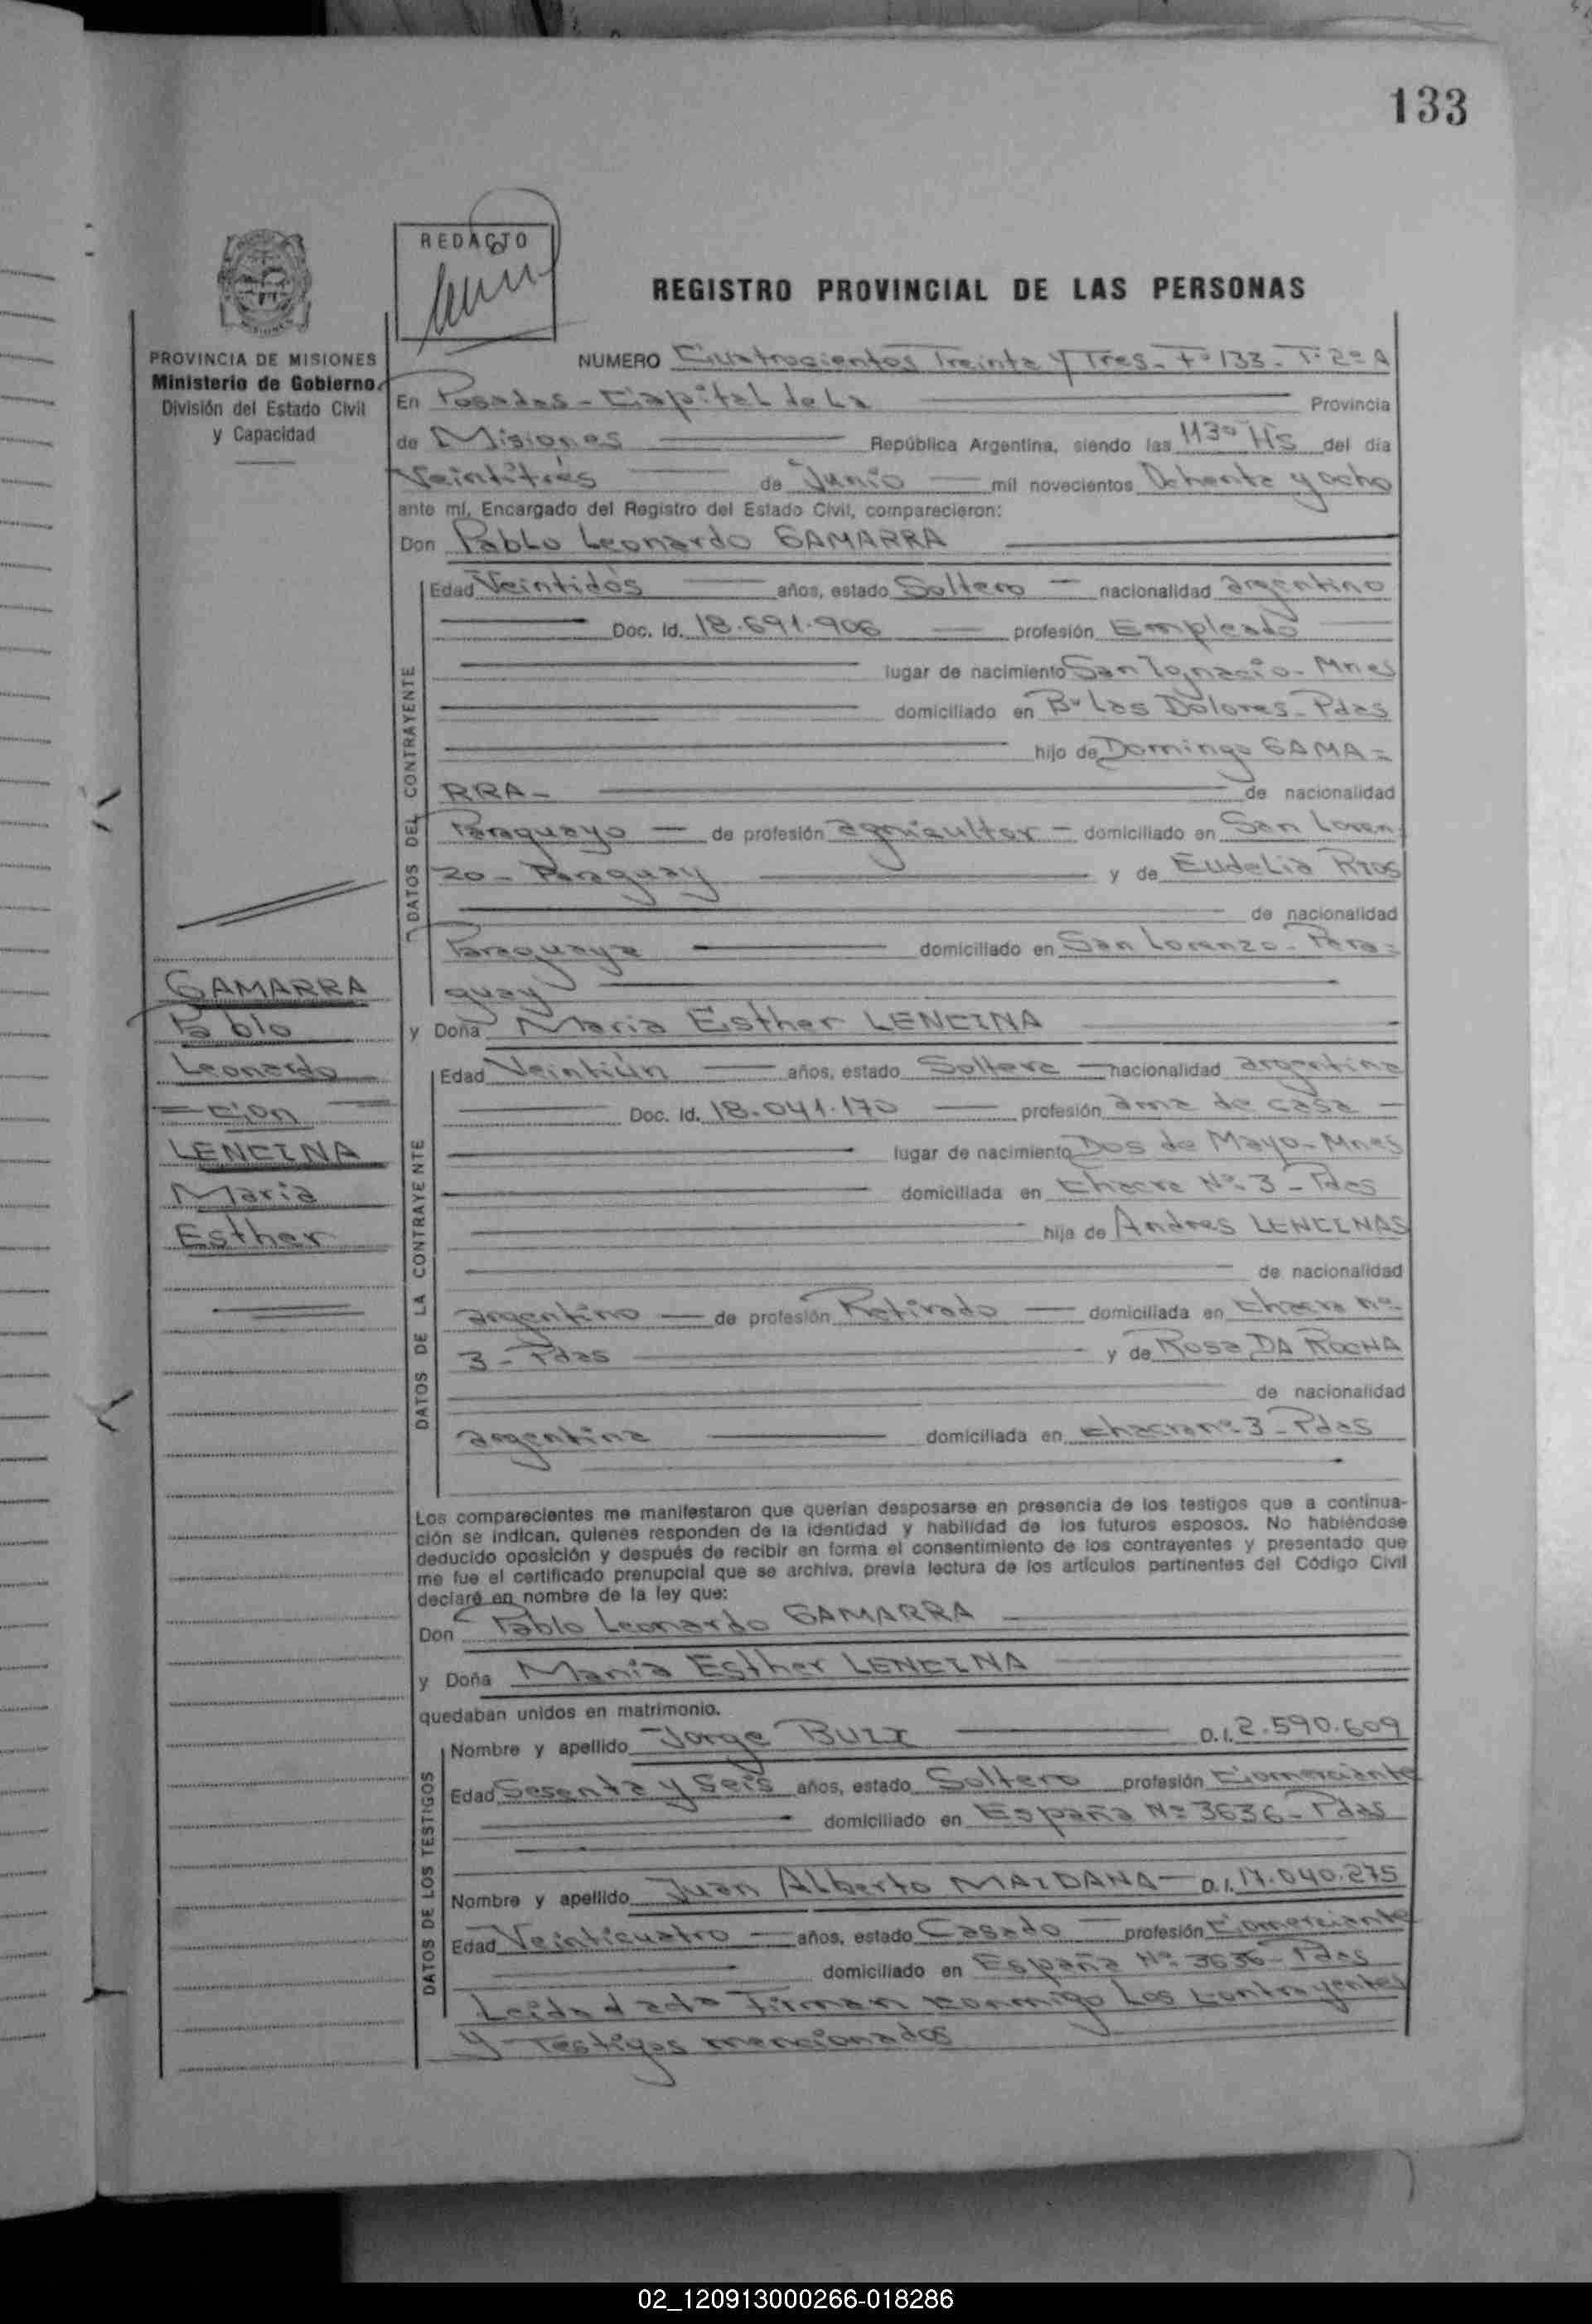 133
REDACTO
REGISTRO PROVINCIAL DE LAS PERSONAS
PROVINCIA DE MISIONES
Ministerio de Gobierno
División del Estado Civil
y Capacidad
NUMERO Cuatrocientos Treinta y Tres - Fº 133 - Tº 2º A
En Posadas - Capital de La Provincia
de Misiones República Argentina, siendo las 1130 Hs del día
Veintitrés de Junio mil novecientos Ochenta y ocho
ante mí, Encargado del Registro del Estado Civil, comparecieron:
Don Pablo Leonardo GAMARRA
DATOS DEL CONTRAYENTE
Edad Veintidós años, estado Soltero nacionalidad argentino
Doc. Id. 18.691.906 profesión Empleado
lugar de nacimiento San Ignacio - Mnes
domiciliado en Bº Las Dolores - Pdas
hijo de Domingo GAMA=
RRA - de nacionalidad
Paraguayo de profesión agricultor - domiciliado en San Loren
zo - Paraguay y de Eudelia RIOS
de nacionalidad
Paraguaya domiciliado en San Lorenzo - Para=
guay
GAMARRA
Pablo
Leonardo
= con =
LENCINA
Maria
Esther
y Doña Maria Esther LENCINA
DATOS DE LA CONTRAYENTE
Edad Veintiún años, estado Soltera nacionalidad argentina
Doc. Id. 18.041.170 profesión ama de casa
lugar de nacimiento Dos de Mayo - Mnes
domiciliada en Chacra Nº 3 - Pdas
hija de Andres LENCINAS
de nacionalidad
argentino de profesión Retirado domiciliada en Chacra nº
3 - Pdas y de Rosa DA ROCHA
de nacionalidad
argentina domiciliada en chacra nº 3 - Pdas
Los comparecientes me manifestaron que querían desposarse en presencia de los testigos que a continua-
ción se indican, quienes responden de la identidad y habilidad de los futuros esposos. No habiéndose
deducido oposición y después de recibir en forma el consentimiento de los contrayentes y presentado que
me fue el certificado prenupcial que se archiva, previa lectura de los artículos pertinentes del Código Civil
declaré en nombre de la ley que:
Don Pablo Leonardo GAMARRA
y Doña Maria Esther LENCINA
quedaban unidos en matrimonio.
DATOS DE LOS TESTIGOS
Nombre y apellido Jorge D.I. 2.590.609
Edad Sesenta y Seis años, estado Soltero profesión Comerciante
domiciliado en España Nº 3636 - Pdas
Nombre y apellido Juan Alberto MAIDANA - D.I. 17.040.275
Edad Veinticuatro años, estado Casado profesión Comerciante
domiciliado en España Nº 3636 - Pdas
Leida el acta Firman conmigo Los contrayentes
y Testigos mencionados
02_120913000266-018286